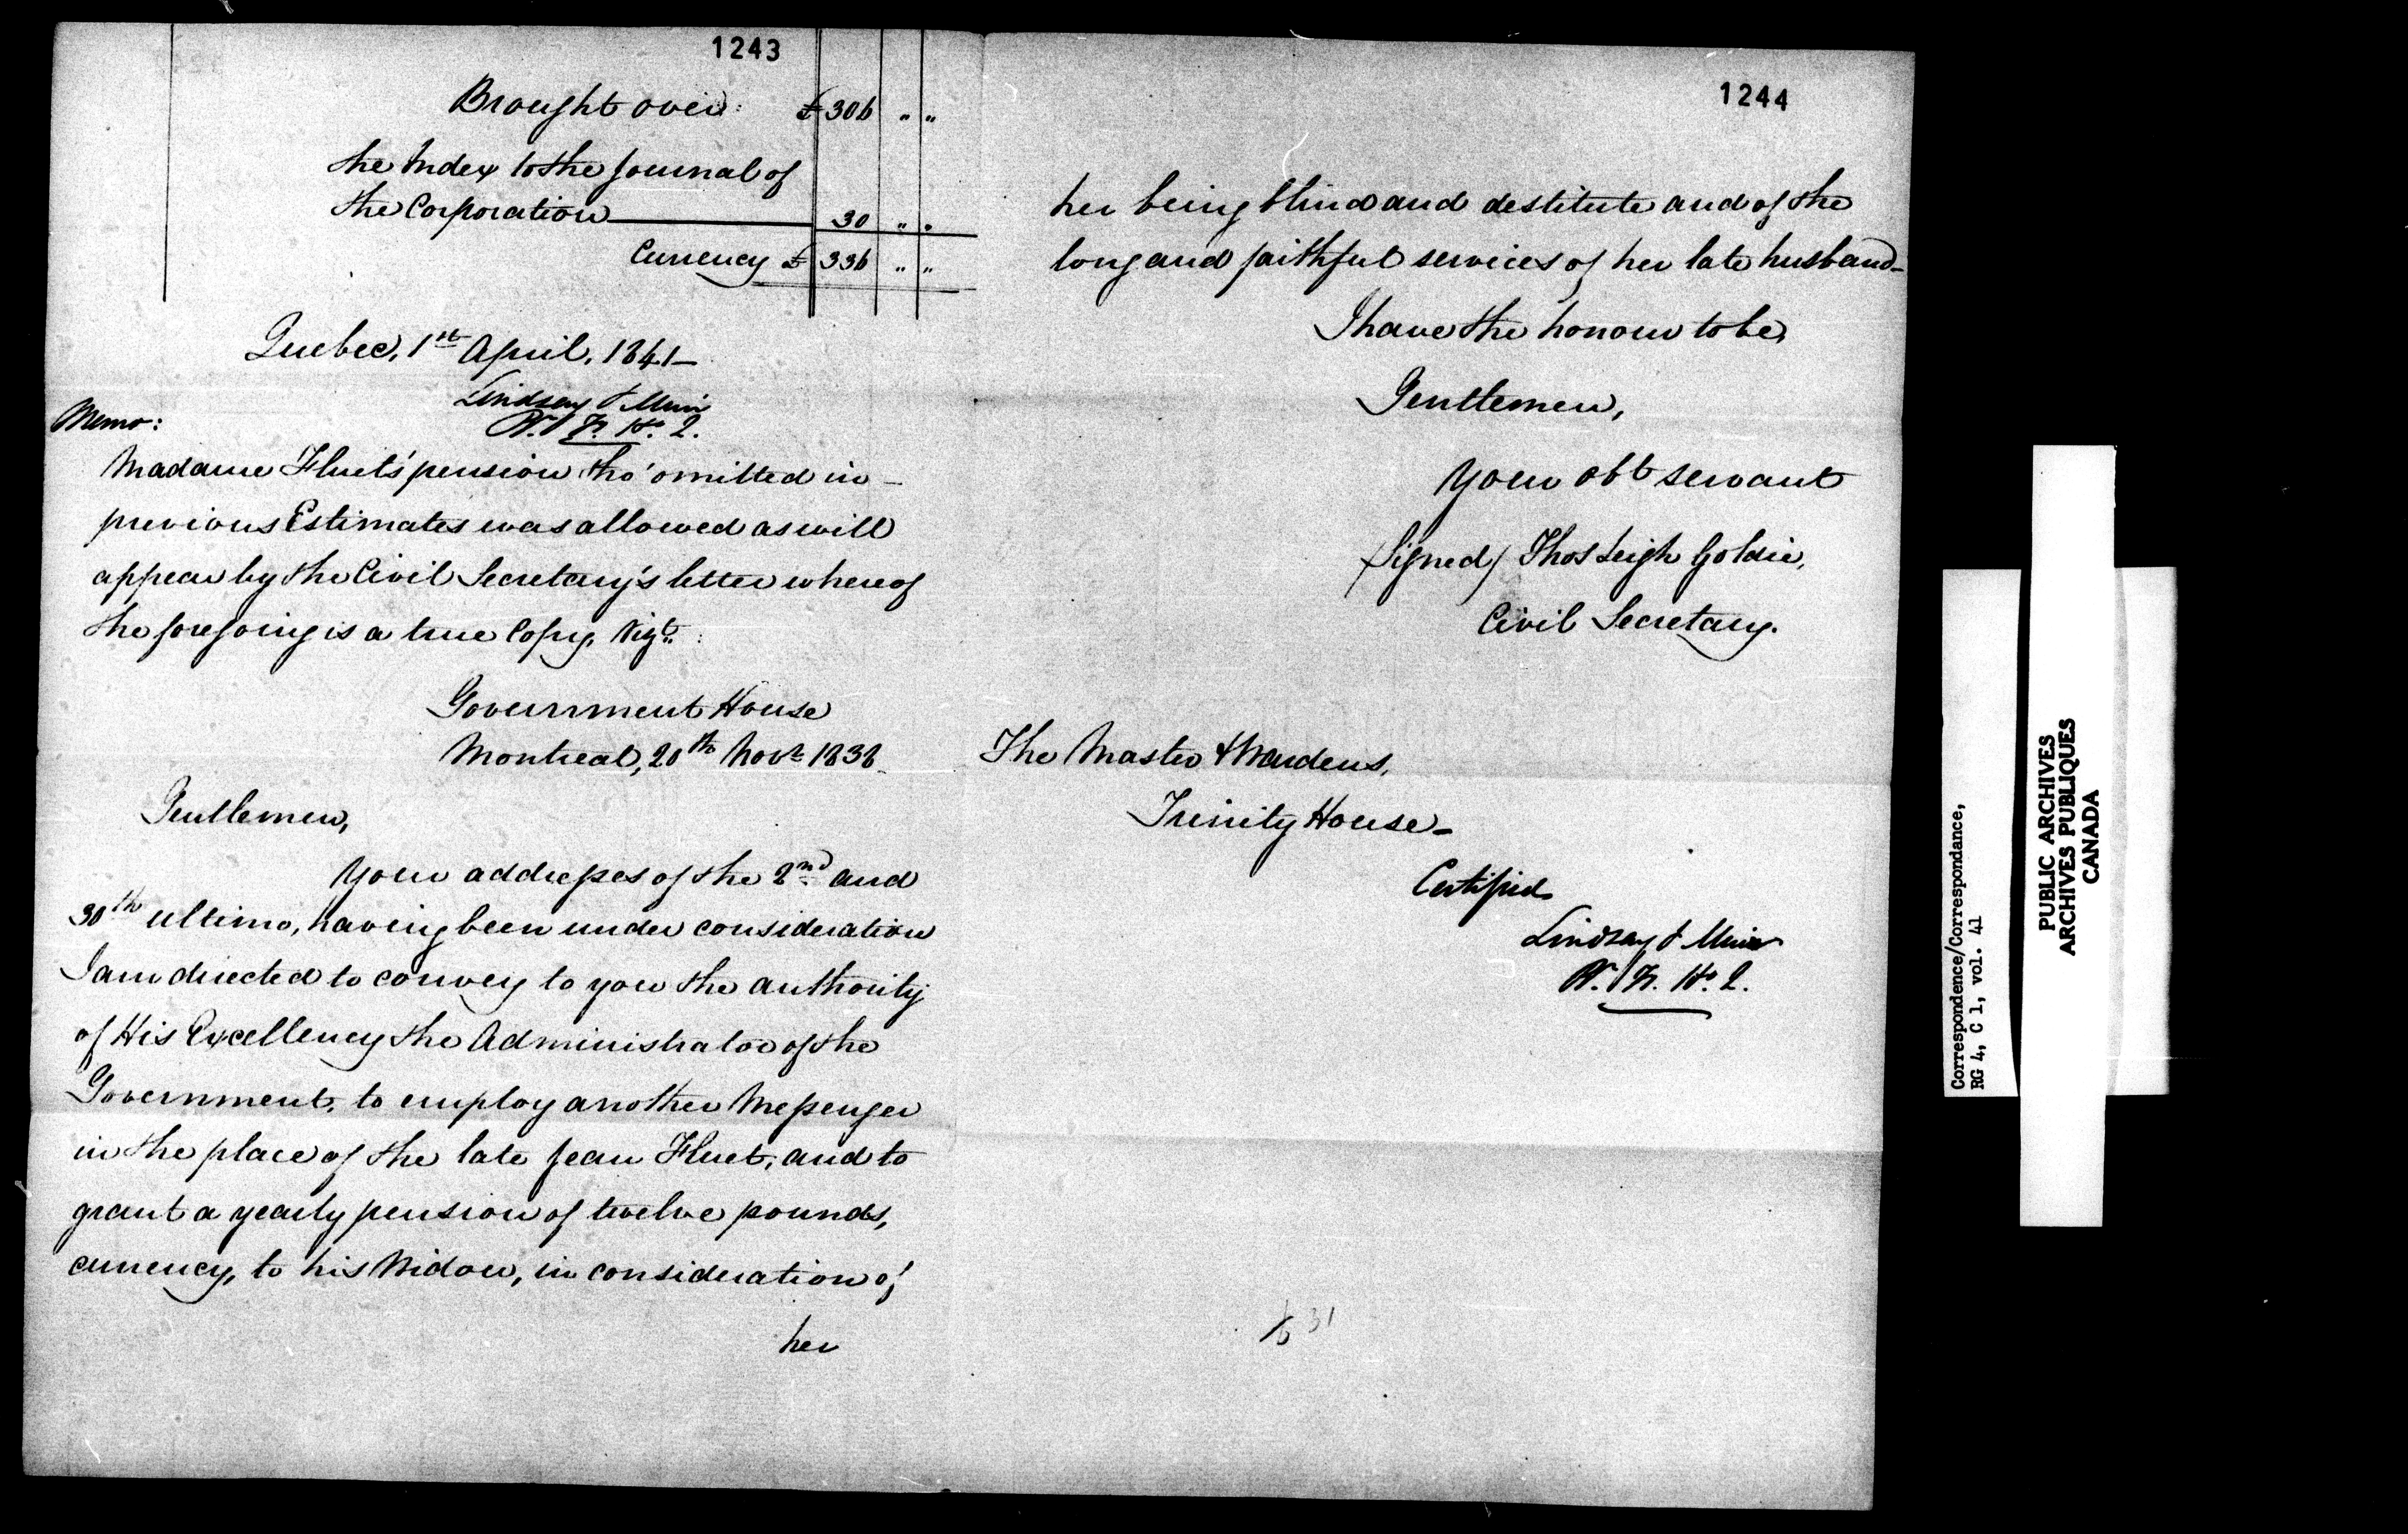 1243
Brought over: £ 306 " "
the Index to the Journal of
the Corporation 30 " "
Currency £ 336 " "
Quebec, 1st April, 1841 –
Lindsay & Muir
Memo:
Madame Fluet's pension tho' omitted in –
previous Estimates was allowed as will
appear by the Civil Secretary's letter whereof
the foregoing is a true Copy, Vizt:
Government House
Montreal, 20th Novr 1838
Gentlemen,
Your addresses of the 2nd and
30th ultimo, having been under consideration
I am directed to convey to you the authority
of His Excellency the Administrator of the
Government, to employ another Messenger
in the place of the late Jean Fluet, and to
grant a yearly pension of twelve pounds,
currency, to his Widow, in consideration of
her
1244
her being blind and destitute and of the
long and faithful services of her late husband –
I have the honour to be,
Gentlemen,
Your obt servant
(Signed) Thos Leigh Goldie,
Civil Secretary.
The Master & Wardens,
Trinity House –
Certified
Lindsay & Muir
31
Correspondence/Correspondance,
RG 4, C 1, vol. 41
PUBLIC ARCHIVES
ARCHIVES PUBLIQUES
CANADA